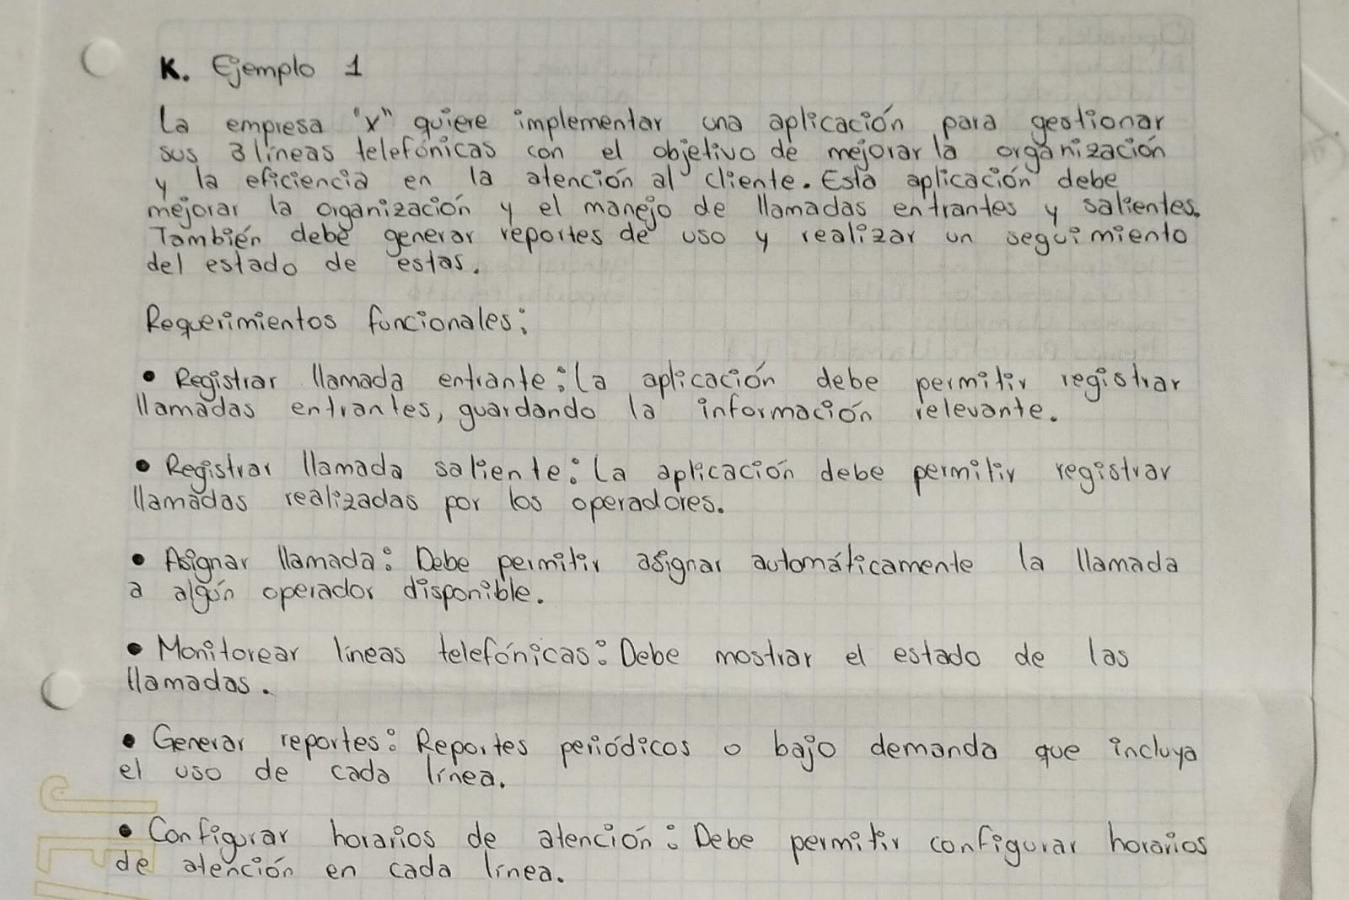 K. Ejemplo 1
La empresa "x" quiere implementar una aplicación para gestionar
sus 3 líneas telefónicas con el objetivo de mejorar la organización
y la eficiencia en la atención al cliente. Esta aplicación debe
mejorar la organización y el manejo de llamadas entrantes y salientes.
También debe generar reportes de uso y realizar un seguimiento
del estado de estas.
Requerimientos funcionales:
• Registrar llamada entrante: La aplicación debe permitir registrar
llamadas entrantes, guardando la información relevante.
• Registrar llamada saliente: La aplicación debe permitir registrar
llamadas realizadas por los operadores.
• Asignar llamada: Debe permitir asignar automáticamente la llamada
a algún operador disponible.
• Monitorear líneas telefónicas: Debe mostrar el estado de las
llamadas.
• Generar reportes: Reportes periódicos o bajo demanda que incluya
el uso de cada línea.
• Configurar horarios de atención: Debe permitir configurar horarios
de atención en cada línea.